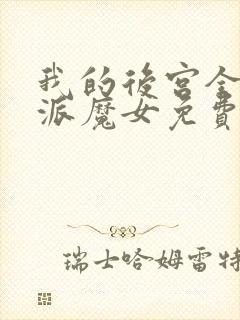 我的後宮全
派魔女免費
瑞士哈姆雷特